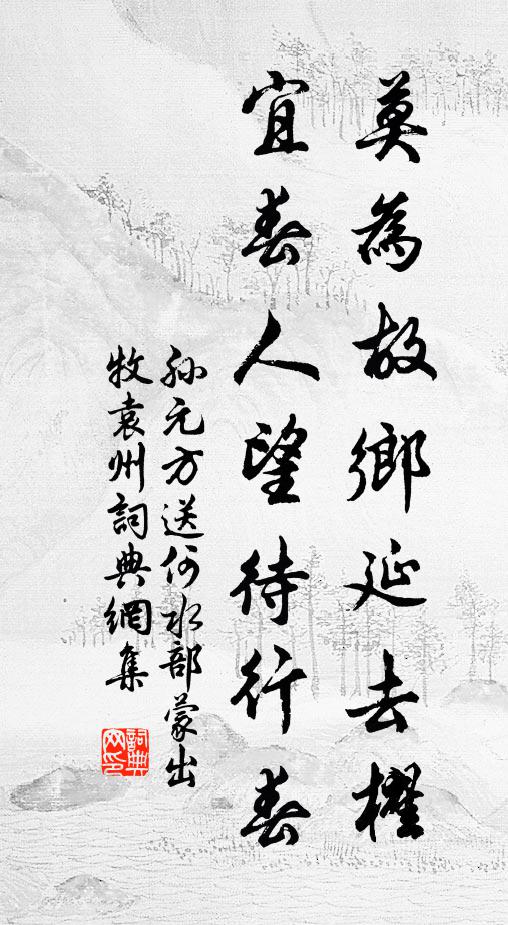 莫為故鄉延去櫂
宜春人望待行春
孫元方送何水部蒙出
牧袁州詞典網集
詞典
网印